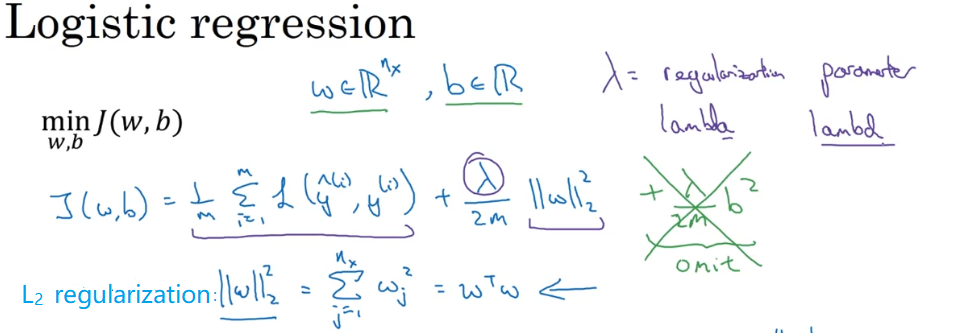 Logistic regression
w ∈ ℝ^{n_x}, b ∈ ℝ
λ = regularization parameter
lambda lambd
min_{w,b} J(w, b)
J(w,b) = 1/m Σ_{i=1}^{m} L(ŷ^{(i)}, y^{(i)}) + λ/2m ||w||_2^2
+ λ/2m b^2
omit
L2 regularization: ||w||_2^2 = Σ_{j=1}^{n_x} w_j^2 = w^T w ←